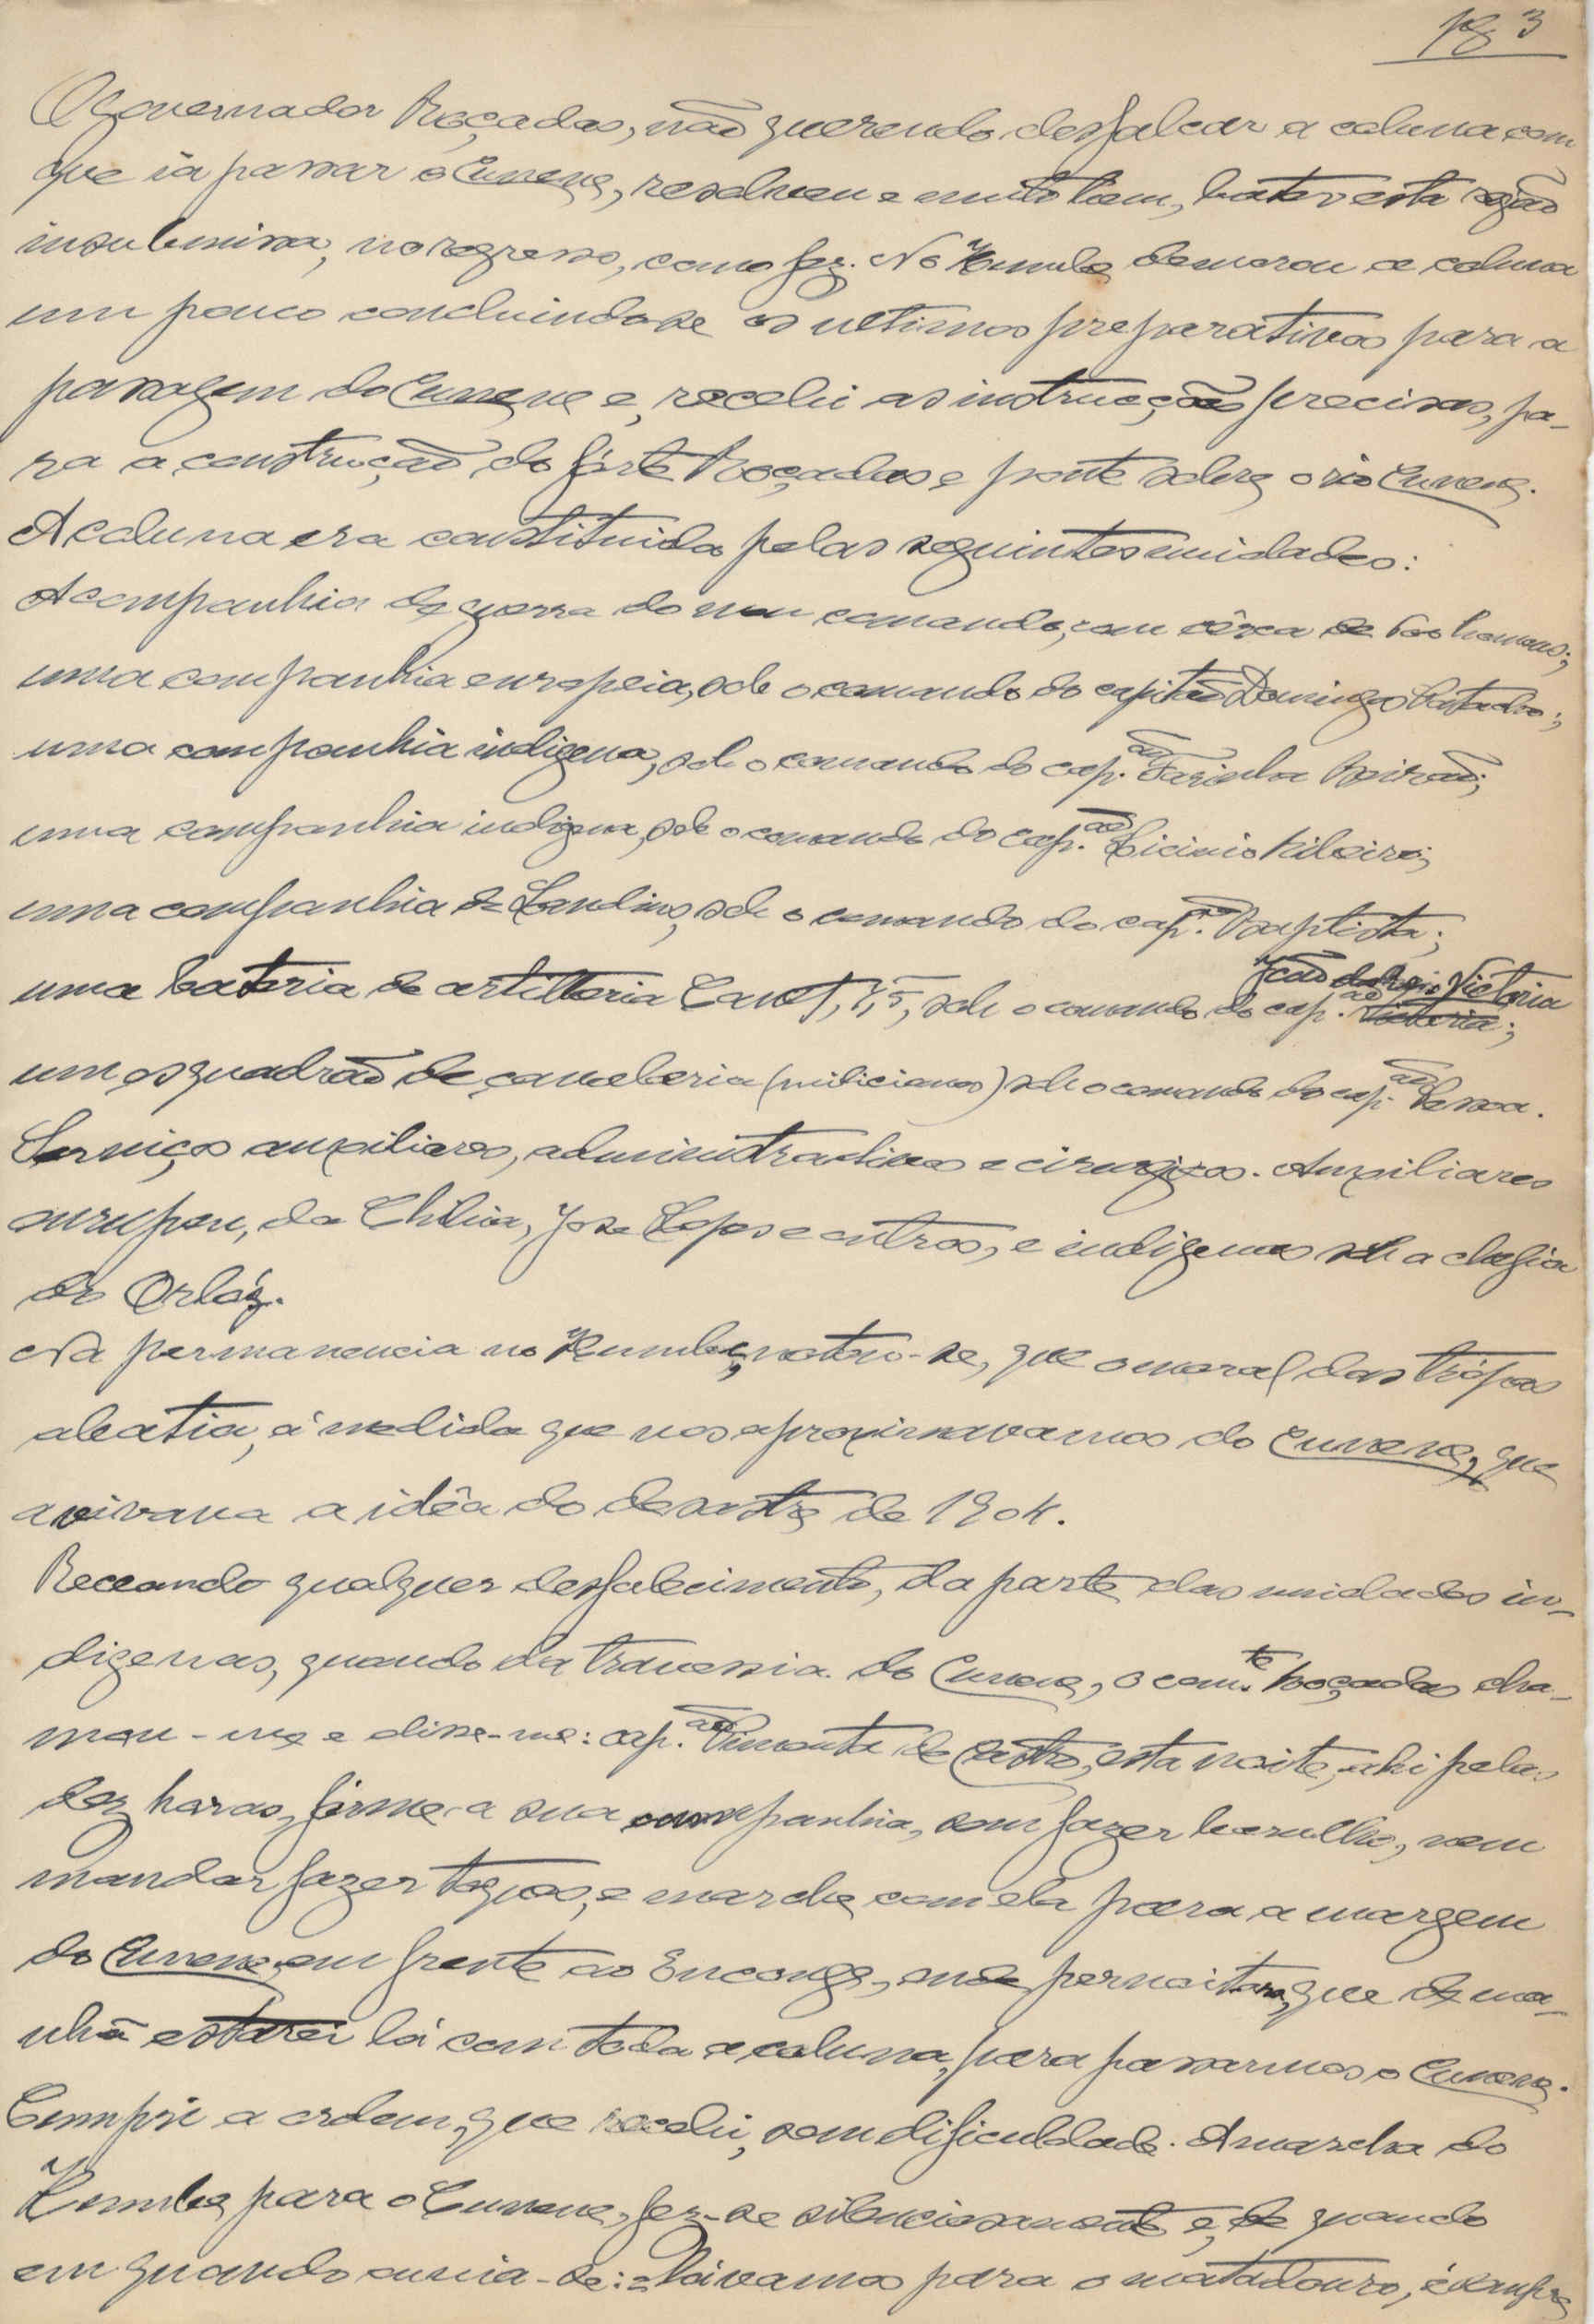 pg 3
O governador Roçadas, não querendo desfalcar a coluna com
que ia passar o Cunene, resolveu e muito bem, bater esta região
insubmissa, no regresso, como fez. No Humbe demorou a coluna
um pouco concluindo-se os ultimos preparativos para a
passagem do Cunene e, recebi as instrucções precisas, pa-
ra a construção do fórte Roçadas e ponte sobre o rio Cunene.
A coluna era constituida pelas seguintes unidades:
A companhia de guerra do meu comando, com cêrca de homens;
uma companhia europeia, sob o comando do capitão Domingos Patacho;
uma companhia indigena, sob o comando do cap.ão Farinha Beirão;
uma companhia indigena, sob o comando do cap.ão Licinio Ribeiro;
uma companhia de Landins, sob o comando do cap.ão Baptista;
uma bateria de artilharia Canet, 7,5, sob o comando do cap.ão João do Rego Victoria
um esquadrão de cavalaria (milicianos) sob o comando do cap.ão Lessa.
Serviços auxiliares, administrativos e cirurgicos. Auxiliares
europeu, da Chibia, José Lopes e outros, e indigenas sob a chefia
do Orlóg.
Na permanencia no Humbe, notou-se, que o moral das trópas
abatia, á medida que nos aproximavamos do Cunene, que
avivava a idêa do desastre de 1904.
Receando qualquer desfalecimento, da parte das unidades in-
digenas, quando da travessia do Cunene, o com.te Roçadas cha-
mou-me e disse-me: cap.ão Pimenta de Castro, esta noite, ahi pelas
dez horas, fórme a sua companhia, sem fazer barulho, nem
mandar fazer toques, e marche com ela para a margem
do Cunene, em frente ao Encongo, onde pernoitará, que de ma-
nhã estarei lá com toda a coluna, para passarmos o Cunene.
Cumpri a ordem, que recebi, sem dificuldade. A marcha do
Humbe para o Cunene, fez-se silenciosamente e, de quando
em quando ouvia-se: = Lá vamos para o matadouro, é sempre